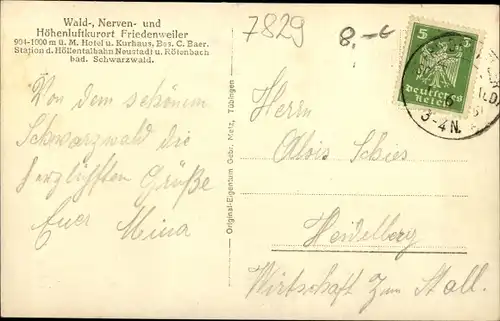 Wald-, Nerven- und
Höhenluftkurort Friedenweiler
904-1000 m ü. M. Hotel u. Kurhaus, Bes. C. Baer.
Station d. Höllentalbahn Neustadt u. Rötenbach
bad. Schwarzwald.
7829
8,-
5
Deutsches
Reich
3-4N.
Von dem schönen
Schwarzwald die
herzlichsten Grüße
Euer Mina
Original-Eigentum Gebr. Metz, Tübingen
Herrn
Alois Schies
Heidelberg
Wirtschaft zum Stall.